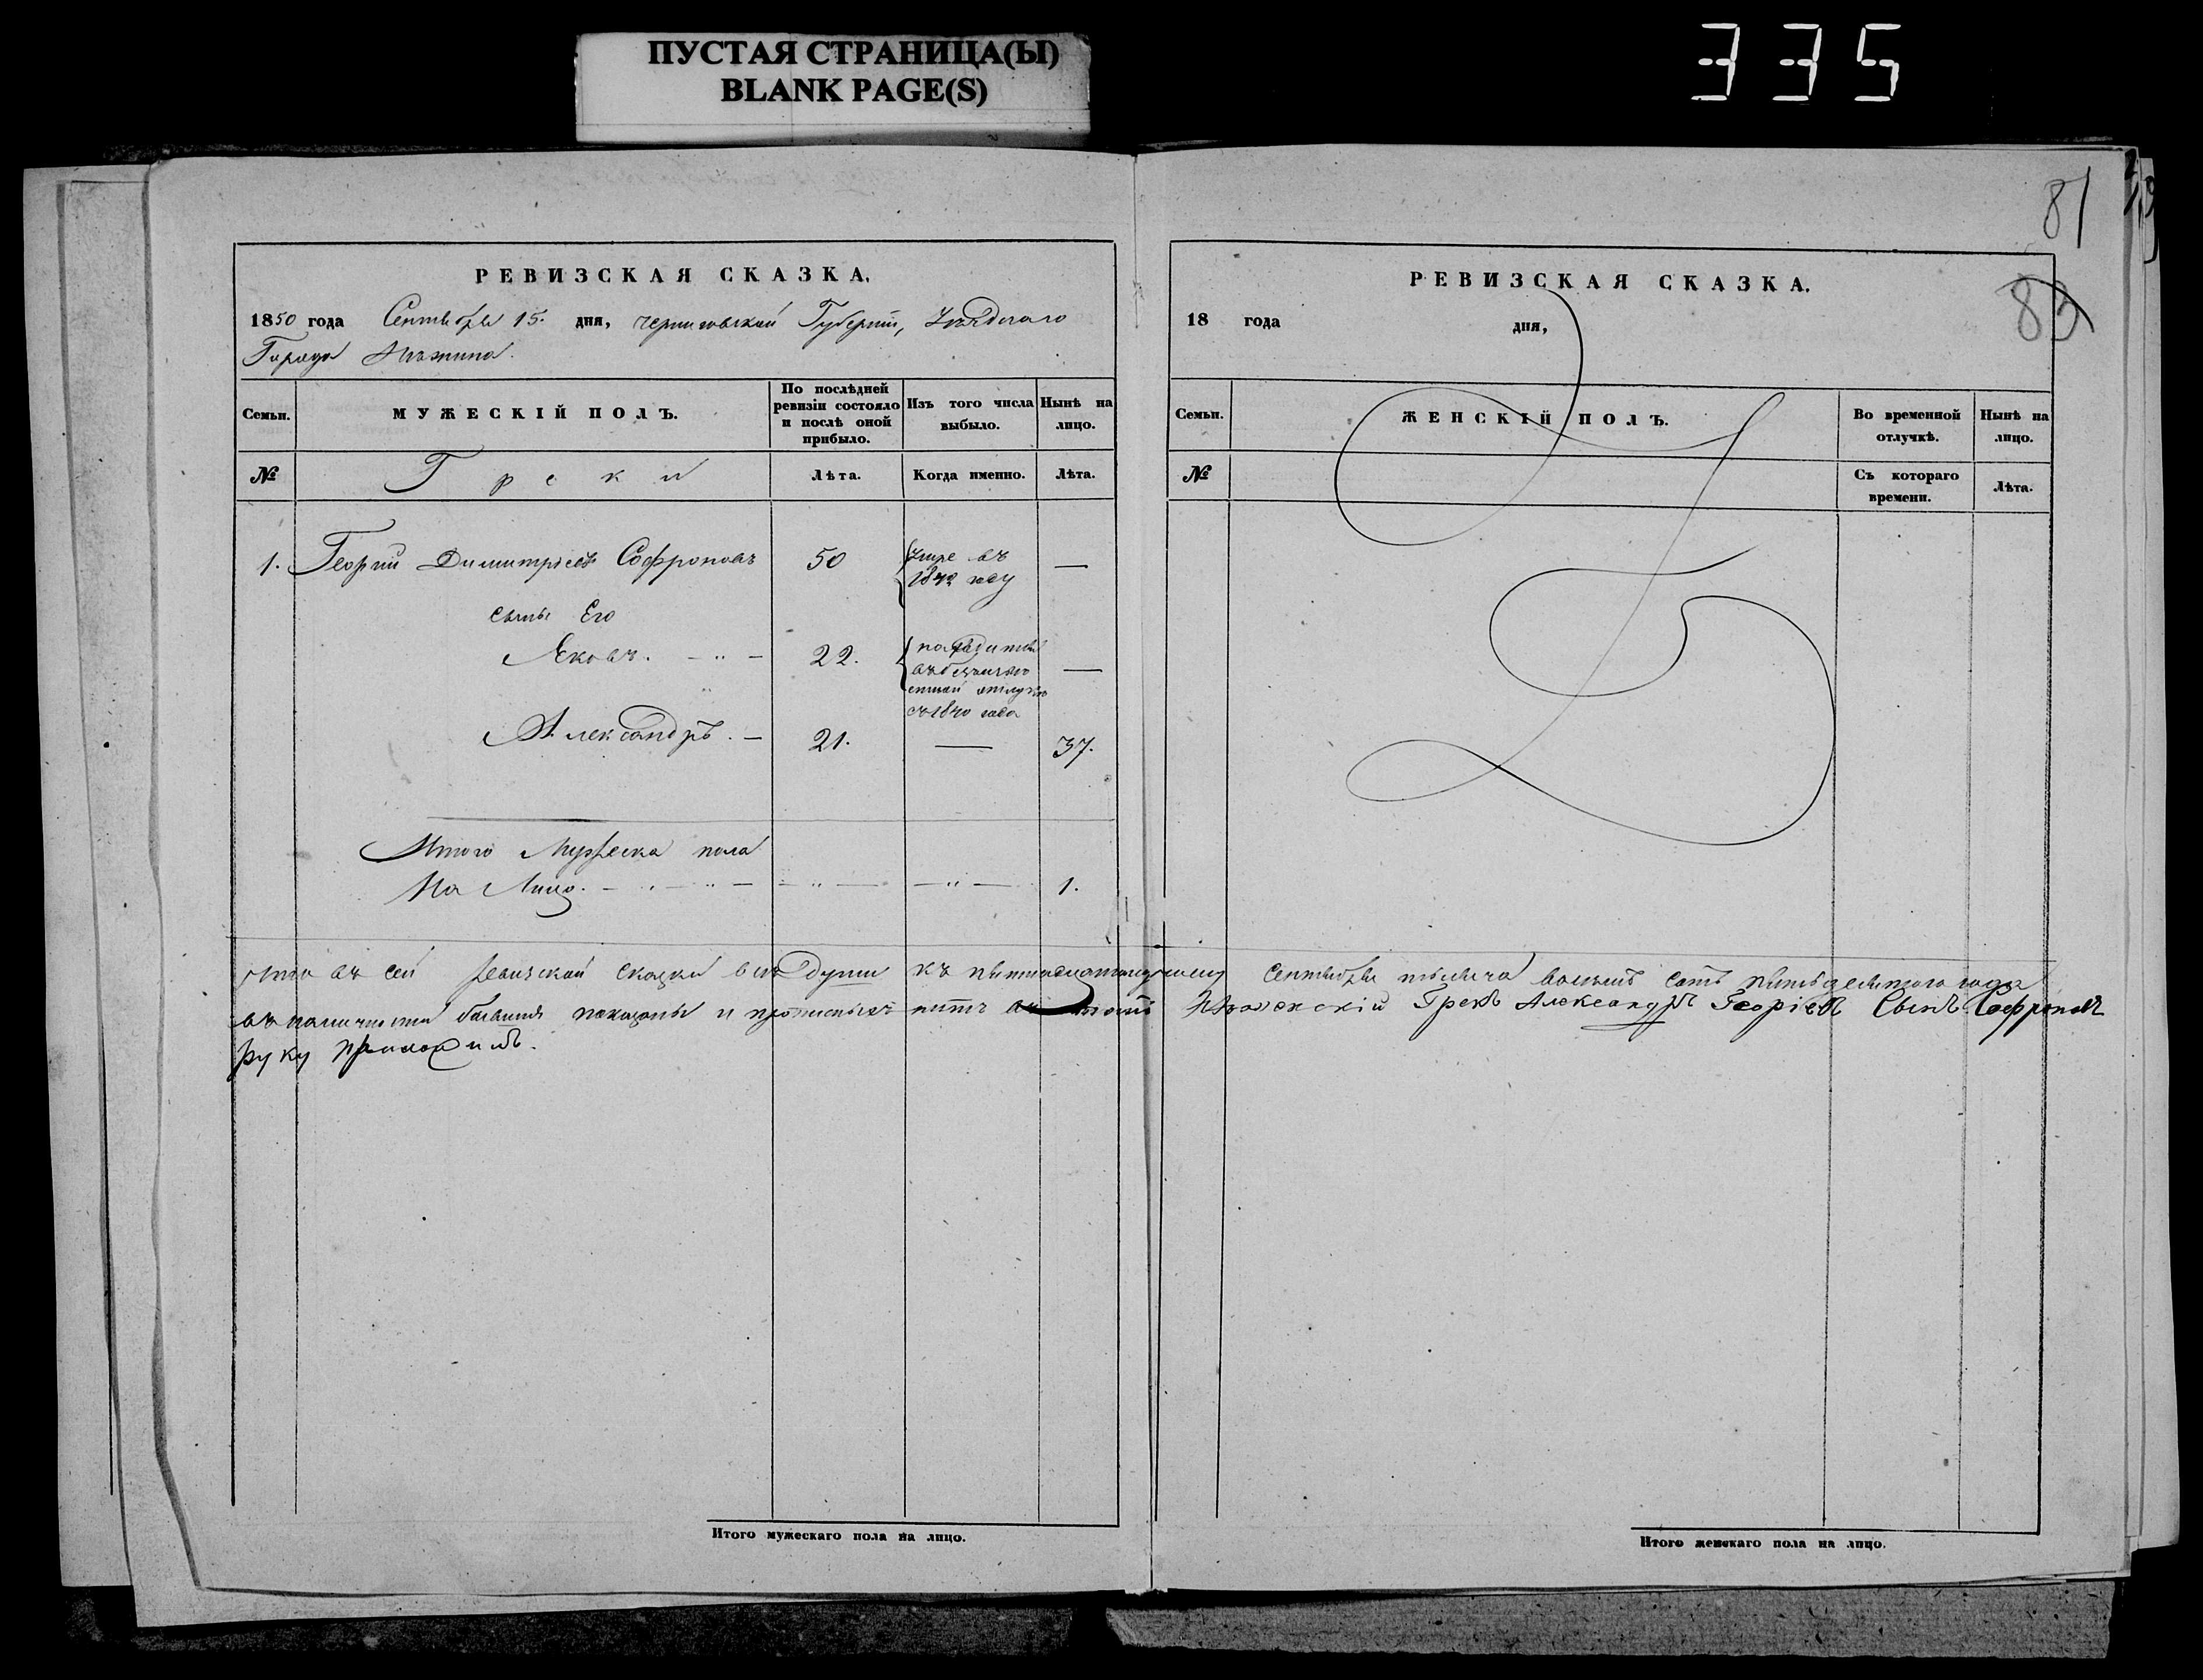 ПУСТАЯ СТРАНИЦА(Ы)
BLANK PAGE(S)
335
81
83
РЕВИЗСКАЯ СКАЗКА.
1850 года Сентября 15. дня, Черниговской Губерніи, Уѣзднаго
Города Нѣжина.
Семьи. МУЖЕСКІЙ ПОЛЪ. По послѣдней ревизіи состояло и послѣ оной прибыло. Изъ того числа выбыло. Нынѣ на лицо.
№ Греки Лѣта. Когда именно. Лѣта.
1. Георгий Димитріевъ Софроновъ 50 умре въ 1842 году —
сыны Его
Яковъ. 22. въ отлучкѣ съ 1840 года —
Александръ. — 21. — 37.
Итого Мужеска пола
На Лицо. 1.
Итого мужескаго пола на лицо.
РЕВИЗСКАЯ СКАЗКА.
18 года дня,
Семьи. ЖЕНСКІЙ ПОЛЪ. Во временной отлучкѣ. Нынѣ на лицо.
№ Съ котораго времени. Лѣта.
Что въ сей ревизской сказки всѣ души къ пятнадцатому числу Сентября тысяча восемь сотъ пятьдесятого года
въ наличности бывшия показаны и прописныхъ нѣтъ въ томъ Нѣженскій Грекъ Александръ Георгіевъ Сынъ Софроновъ
руку приложилъ.
Итого женскаго пола на лицо.